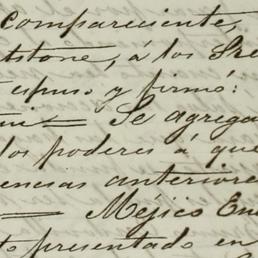 compareciente,
tstone, á los Sre
espuso y firmó:
Se agrega
los poderes á que
encias anteriore
Méjico Ene
to presentado en